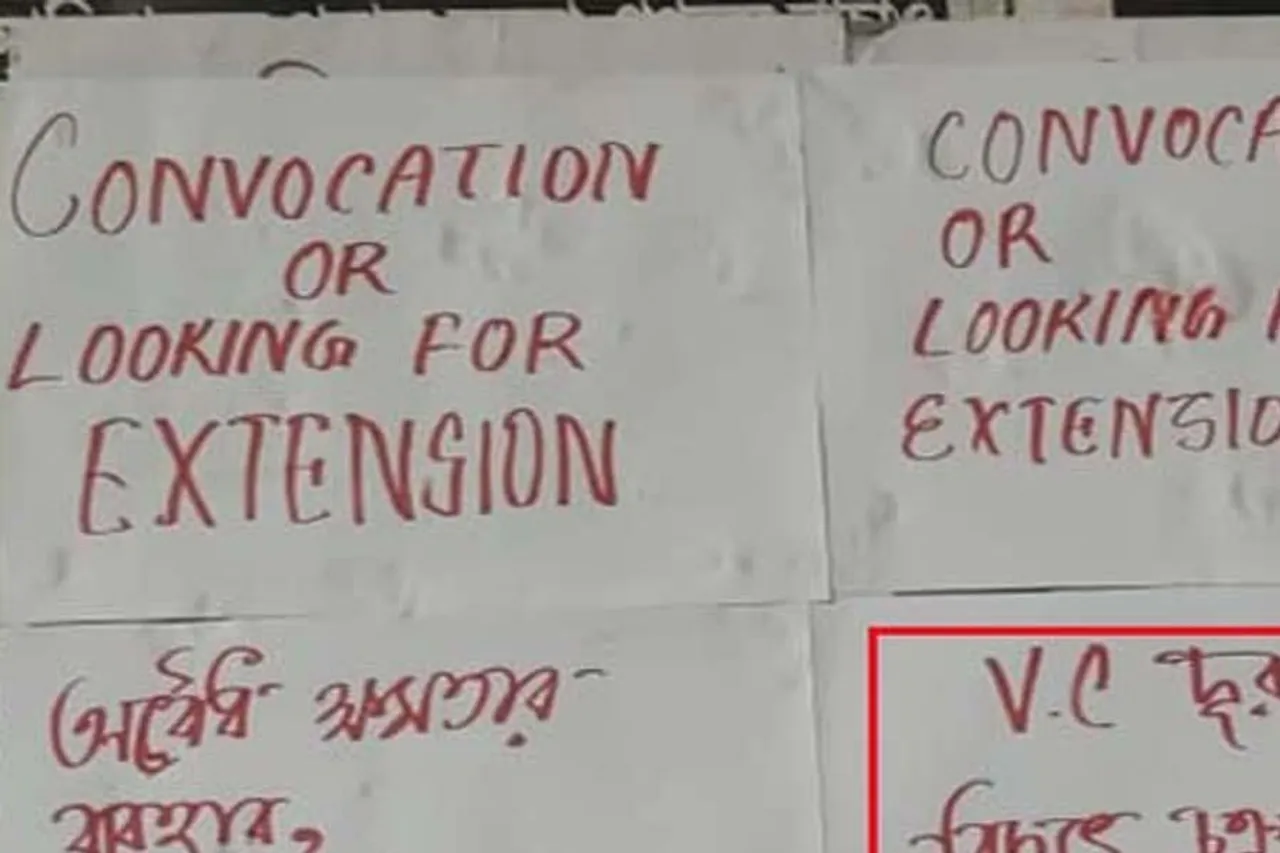 CONVOCATION
OR
LOOKING FOR
EXTENSION
CONVOCA
OR
LOOKING
EXTENSIO
অবৈধ ক্ষমতার
ব্যবহার,
V.C